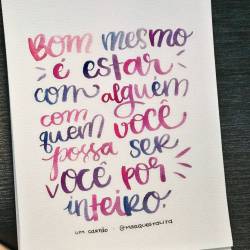 Bom mesmo
é estar
com alguém
com
quem você
possa ser
você por
inteiro.
um cartão . @marquestalita